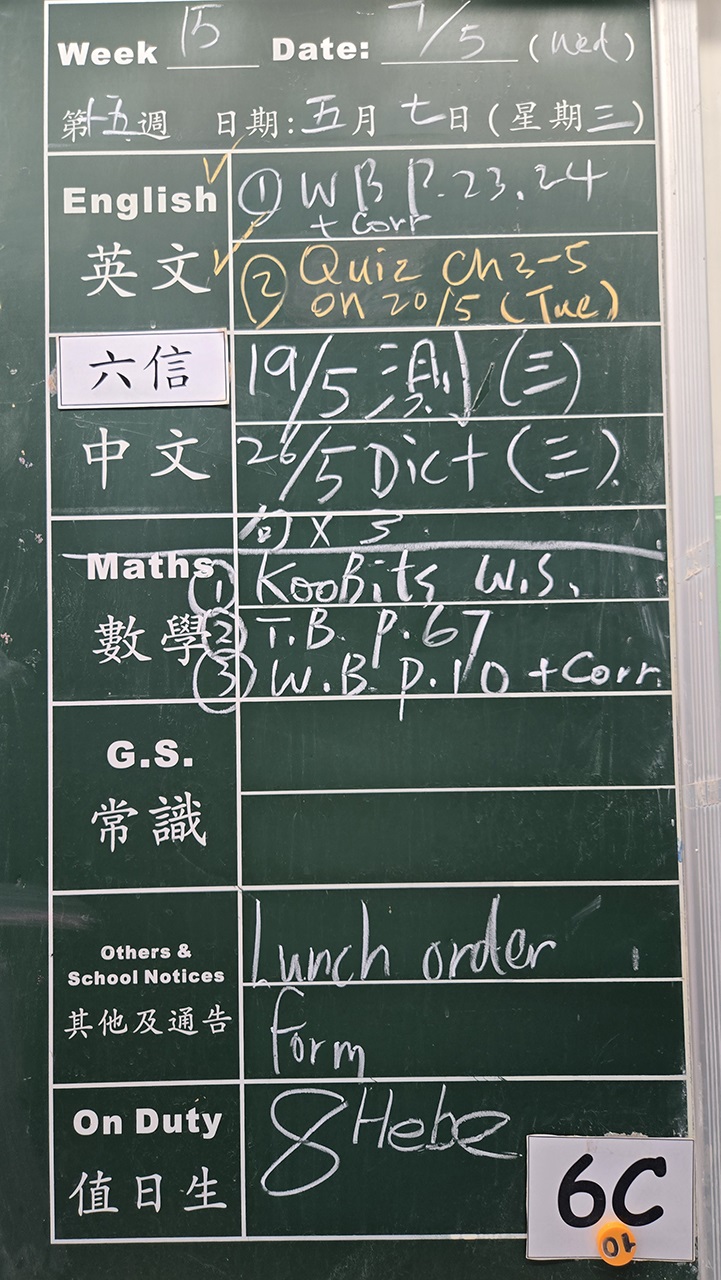 Week 15 Date: 7/5 (Wed)
第十五週 日期:五月七日(星期三)
English
英文
① W B P.23.24
+ Corr
② Quiz Ch 3-5
on 20/5 (Tue)
六信
中文
19/5 測(三)
26/5 Dict (三).
句 x 3
Maths
數學
① KooBits W.S.
② T.B. p.67
③ W.B p.10 + Corr.
G.S.
常識
Others &
School Notices
其他及通告
Lunch order
form
On Duty
值日生
8 Hebe
6C